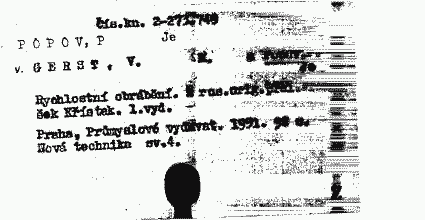 čís.kn. 2-271.749
POPOV, P Je
v. GERST, V.
Rychlostní obrábění. Z rus.orig.přel.
ček Křístek. 1.vyd.
Praha, Průmyslové vydavat. 1951. 98 s.
Nová technika sv.4.